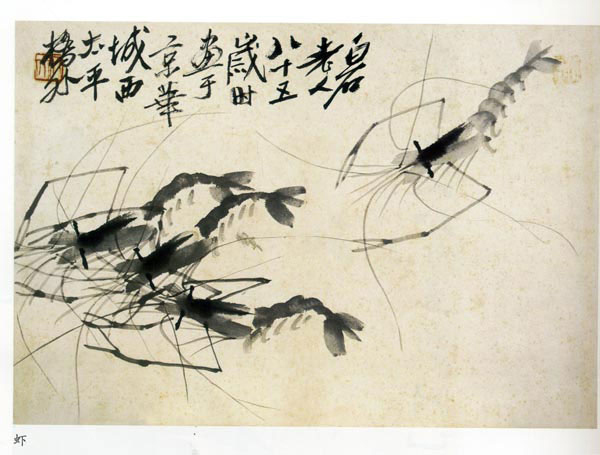 白石
老人
八十五
歲时
画于
京華
城西
太平
橋外
虾